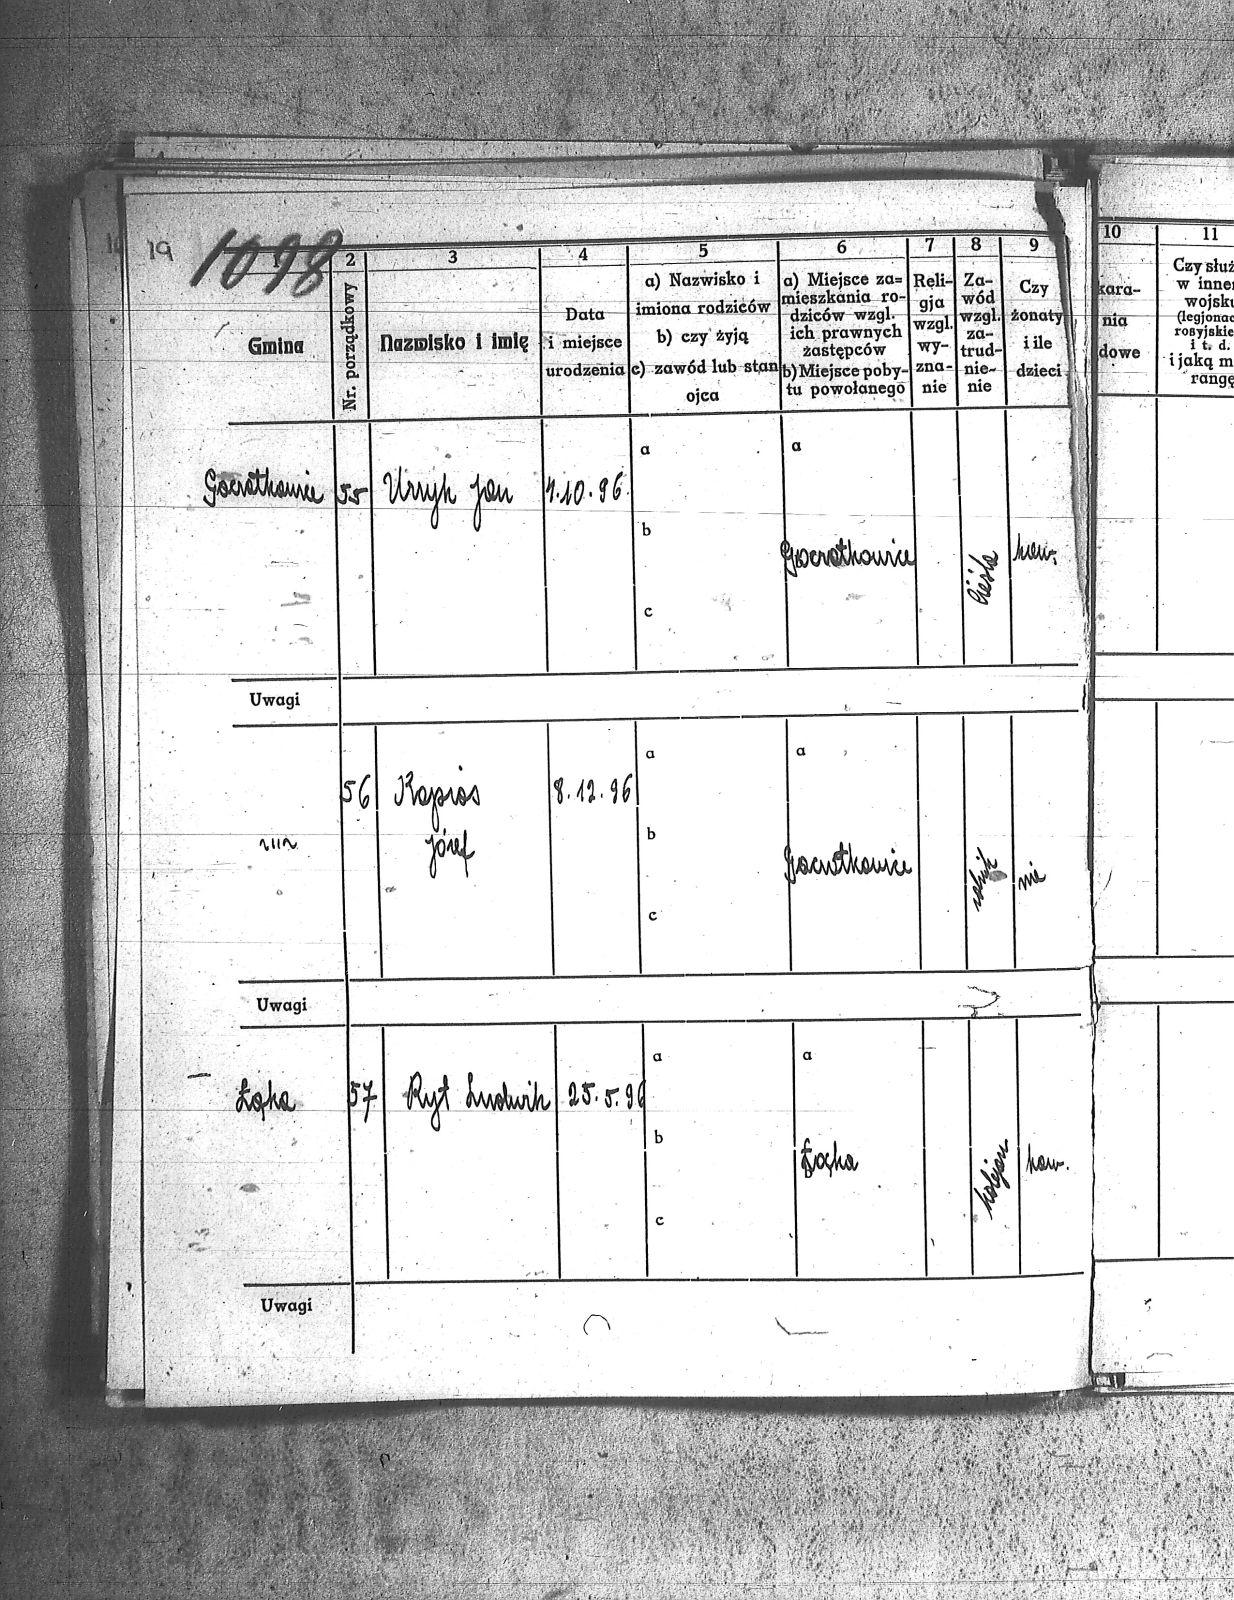 19 1098
1 2 3 4 5 6 7 8 9 10 11
Gmina
Nr. porządkowy
Nazwisko i imię
Data
i miejsce
urodzenia
a) Nazwisko i
imiona rodziców
b) czy żyją
c) zawód lub stan
ojca
a) Miejsce za=
mieszkania ro-
dziców wzgl.
ich prawnych
zastępców
b) Miejsce poby-
tu powołanego
Reli-
gja
wzgl.
wy-
zna-
nie
Za-
wód
wzgl.
za-
trud-
nie-
nie
Czy
żonaty
i ile
dzieci
kara-
nia
dowe
Czy służ
w inner
wojsku
(legjonac
rosyjskie
i t. d.
i jaką m
rangę
a a
Goczałkowice 55 Jan 4.10.96
b
Goczałkowice cieśla kaw.
c
Uwagi
a a
56 Kapias 8.12.96
Józef b
Goczałkowice rolnik nie
c
Uwagi
a a
Łąka 57 Ryt Ludwik 25.5.96
b
Łąka kolejarz kaw.
c
Uwagi